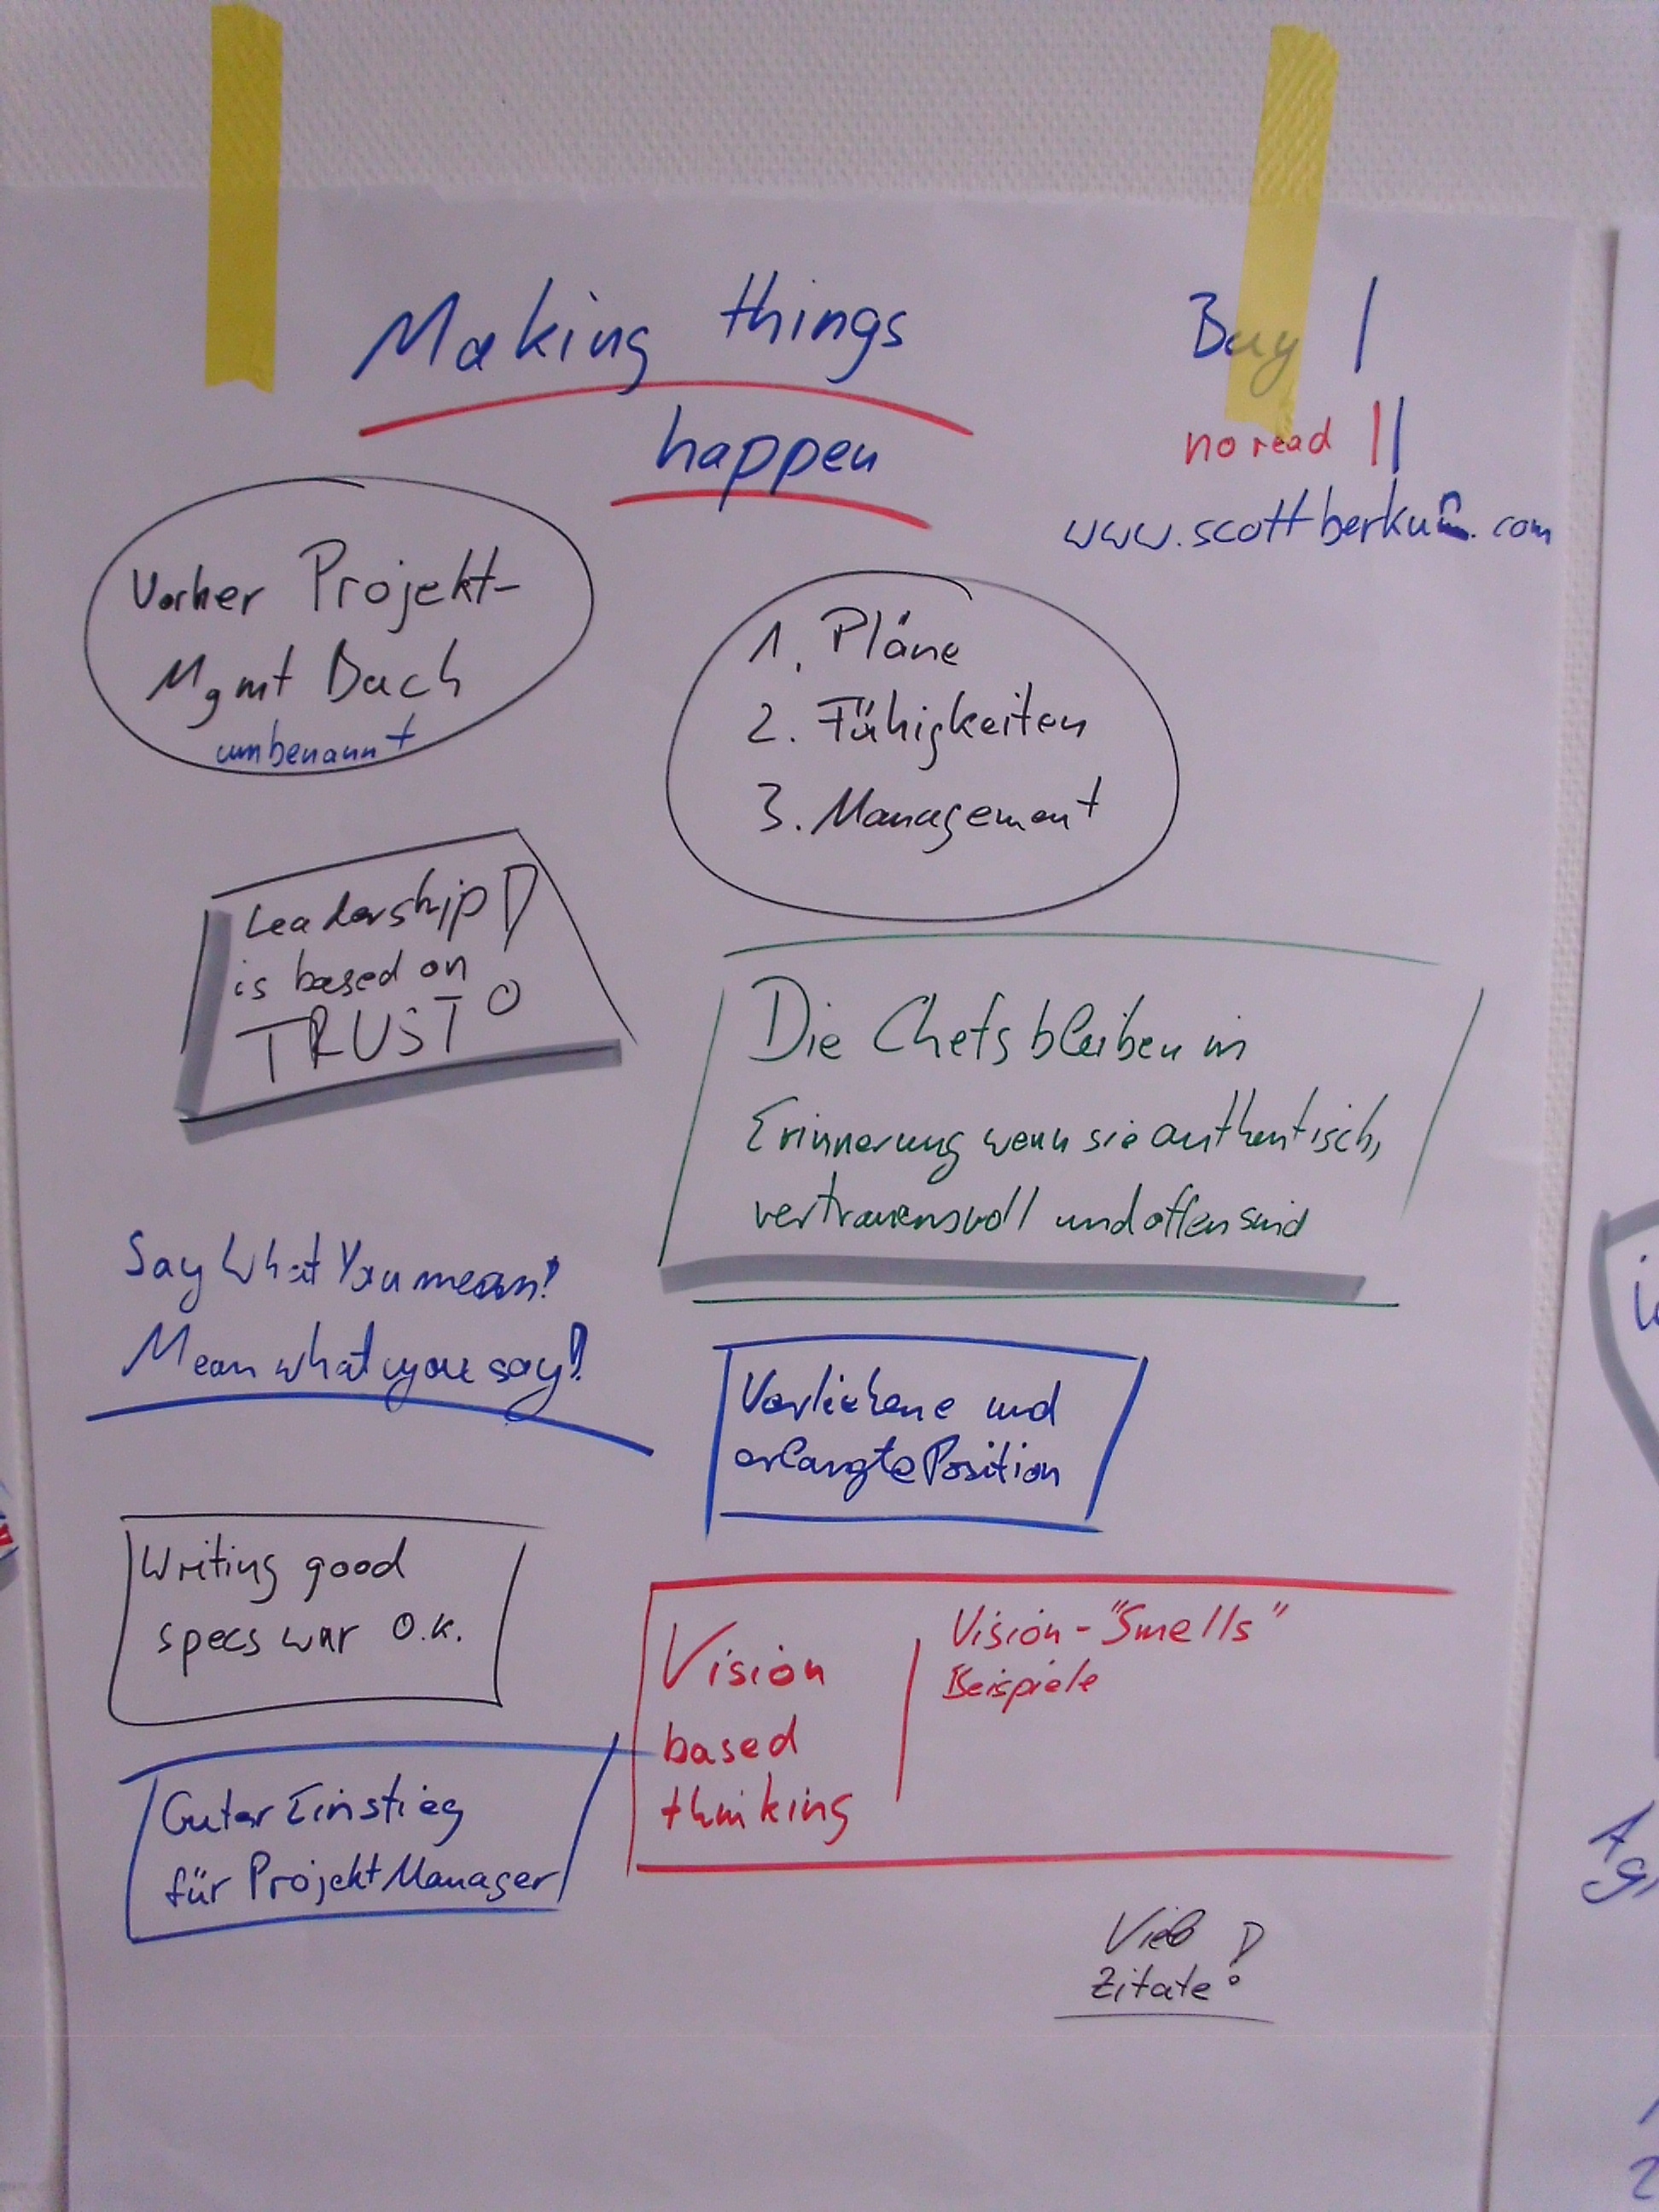 Making things
happen
Buy |
no read ||
www.scottberkun.com
Vorher Projekt-
Mgmt Buch
umbenannt
1. Pläne
2. Fähigkeiten
3. Management
Leadership
is based on
TRUST!
Die Chefs bleiben in
Erinnerung wenn sie authentisch,
vertrauensvoll und offen sind
Say What You mean!
Mean what you say!
Verliehene und
erlangte Position
Writing good
specs war O.K.
Vision
based
thinking
Vision-"Smells"
Beispiele
Guter Einstieg
für Projekt Manager
Viele
Zitate!